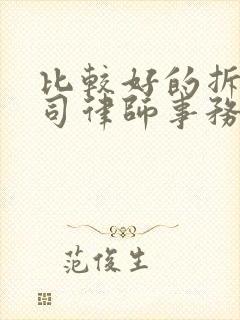 比較好的拆
司律師事務
范俊生